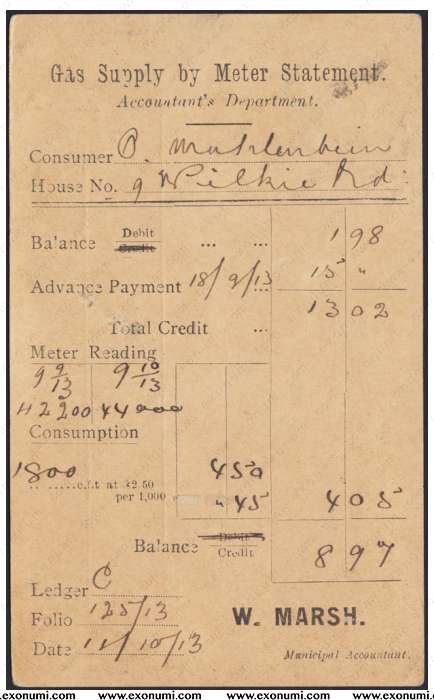 Gas Supply by Meter Statement.
Accountant's Department.
Consumer P. Muhlenbein
House No. 9 Wilkie Rd.
Balance Debit Credit ... ... 1 98
Advance Payment 18/9/13 ... 15 "
Total Credit ... 13 02
Meter Reading
9 9/13 9 10/13
42200 44000
Consumption
1800 450
c.ft at $2.50
per 1,000 " 45 4 05
Balance Debit Credit 8 97
Ledger C
Folio 125/13
Date 11/10/13
W. MARSH.
Municipal Accountant.
www.exonumi.com www.exonumi.com www.exonumi.com